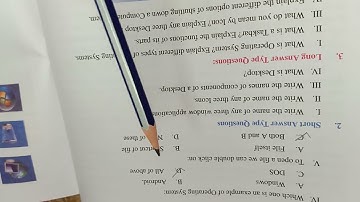 IV Which one is an example of Operating System:
A. Windows B. Android.
C. DOS D. All of above
V. To open a file we can double click on:
A. File itself B. Shortcut of file
C. Both A and B D. of these
2. Short Answer Type Questions
I. Write the name of any three window application
II. Write the name of any three Icons.
III. Write the names of components of a Desktop.
IV. What is Desktop?
3. Long Answer Type Questions:
I. What is Operating System? Explain different types of Operating System.
II. What is a Taskbar? Explain the functions of its parts.
III. What do you mean by Icon? Explain any three Desktop
IV. Explain the different options of shutting down a Computer